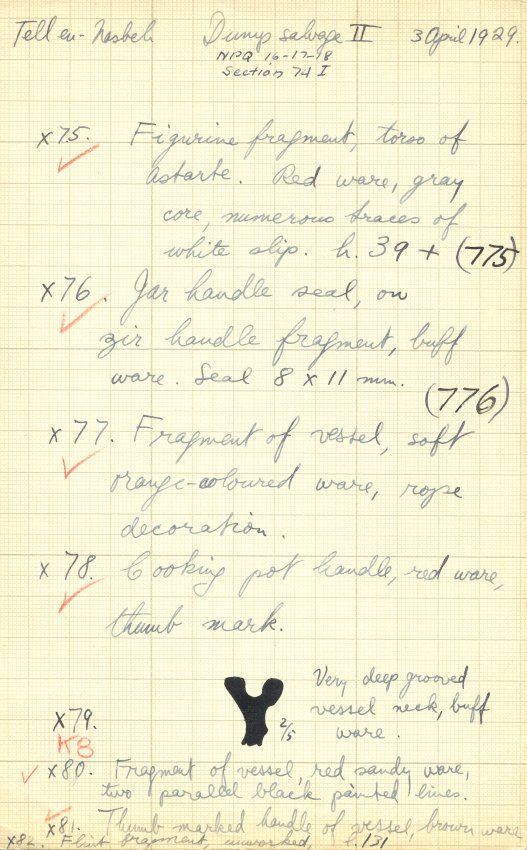 Tell en-Nasbeh Dump salvage II 3 April 1929.
NPQ 16-17-18
Section 74 I
x75. Figurine fragment, torso of
Astarte. Red ware, gray
core, numerous traces of
white slip. h. 39 + (775)
x76. Jar handle seal, on
zir handle fragment, buff
ware. Seal 8 x 11 mm.
(776)
x77. Fragment of vessel, soft
orange-coloured ware, rope
decoration.
x78. Cooking pot handle, red ware,
thumb mark.
Very deep grooved
vessel neck, buff
x79. 2/5 ware.
K8
x80. Fragment of vessel, red sandy ware,
two parallel black painted lines.
x81. Thumb marked handle of vessel, brown ware
x82. Flint fragment, unworked, h. 131